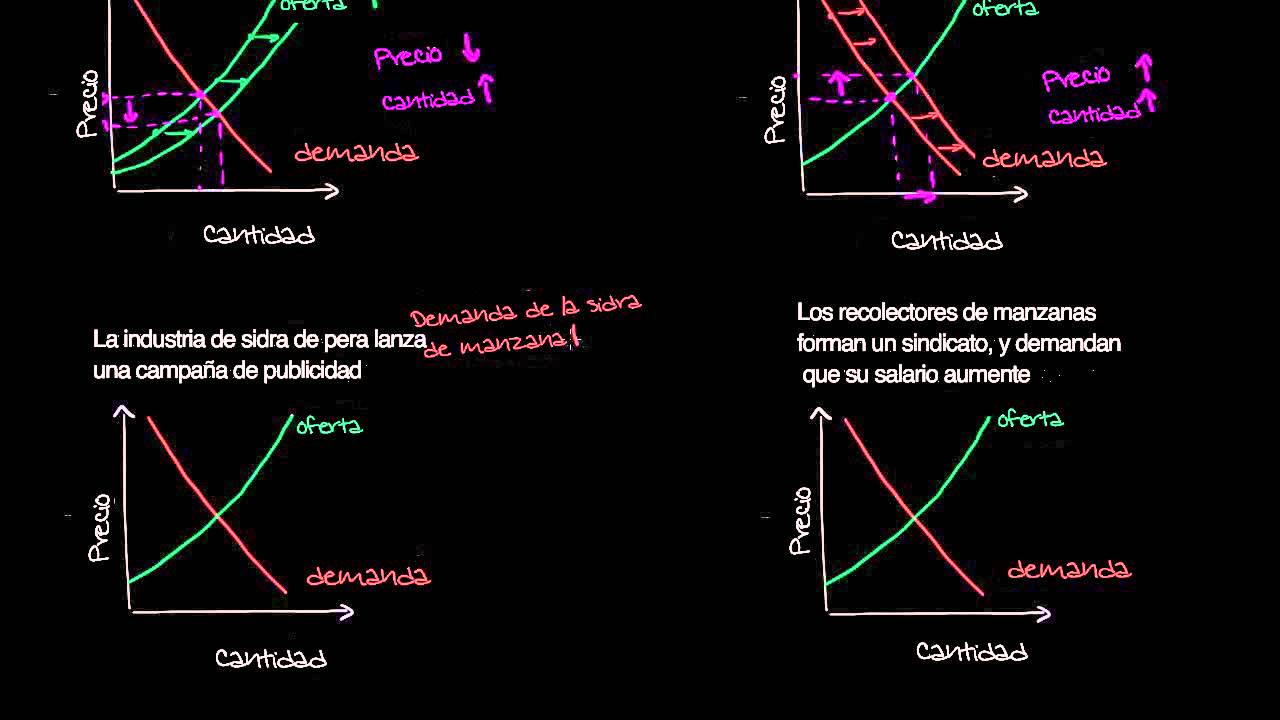 oferta
Precio
Precio
cantidad
demanda
cantidad
oferta
Precio
Precio
cantidad
demanda
cantidad
La industria de sidra de pera lanza
una campaña de publicidad
Demanda de la sidra
de manzana
oferta
Precio
demanda
cantidad
Los recolectores de manzanas
forman un sindicato, y demandan
que su salario aumente
oferta
Precio
demanda
cantidad